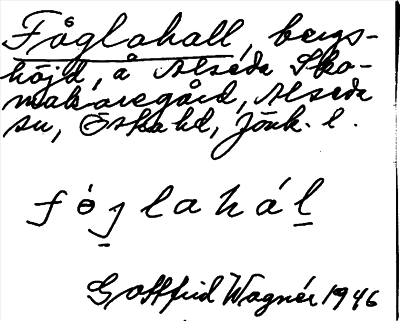 Fåglahall, bergs-
höjd, å Alseda Sko-
makaregård, Alseda
sn, Östra hd, Jönk. l.
föglahál
Gottfrid Wagnér 1946